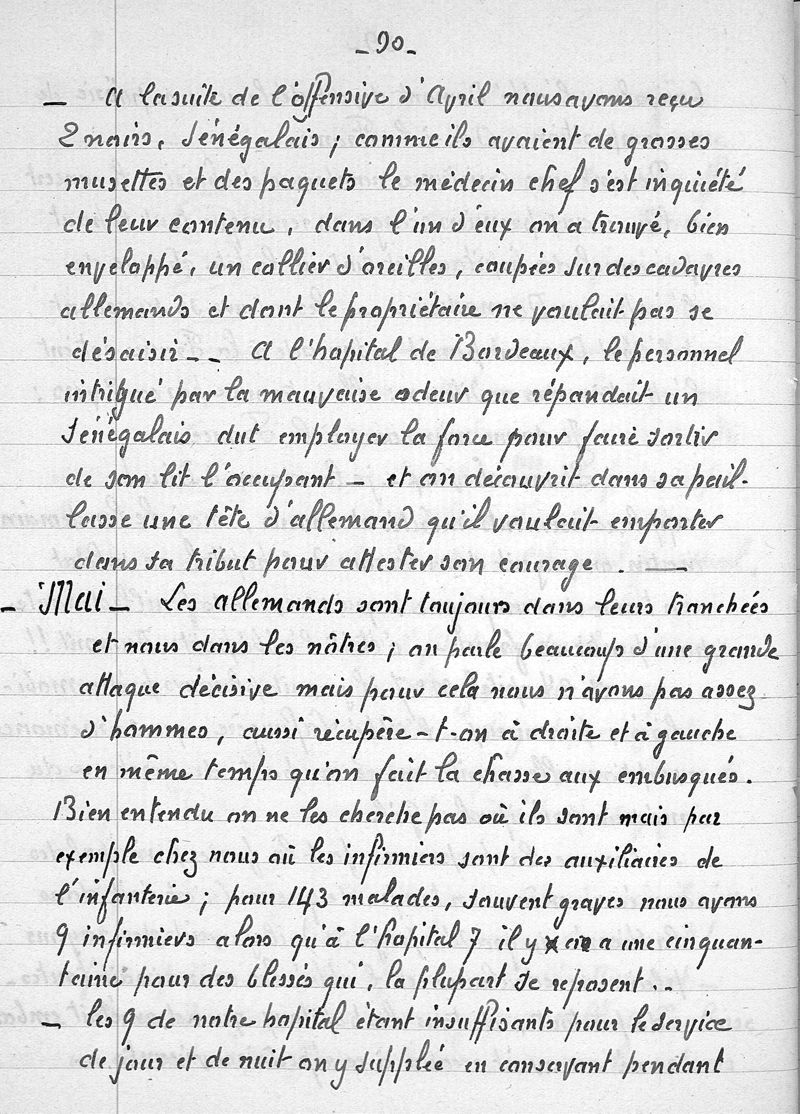 - 90 -
— A la suite de l'offensive d'Avril nous avons reçu
2 noirs, Sénégalais ; comme ils avaient de grosses
musettes et des paquets le médecin chef s'est inquiété
de leur contenu, dans l'un d'eux on a trouvé, bien
enveloppé, un collier d'oreilles, coupées sur des cadavres
allemands et dont le propriétaire ne voulait pas se
désaisir -- A l'hopital de Bordeaux, le personnel
intrigué par la mauvaise odeur que répandait un
Sénégalais dut employer la force pour faire sortir
de son lit l'occupant — et on découvrit dans sa pail-
lasse une tête d'allemand qu'il voulait emporter
dans sa tribut pour attester son courage . —
- Mai - Les allemands sont toujours dans leurs tranchées
et nous dans les nôtres ; on parle beaucoup d'une grande
attaque décisive mais pour cela nous n'avons pas assez
d'hommes, aussi récupère-t-on à droite et à gauche
en même temps qu'on fait la chasse aux embusqués.
Bien entendu on ne les cherche pas où ils sont mais par
exemple chez nous où les infirmiers sont des auxiliaires de
l'infanterie ; pour 143 malades, souvent graves nous avons
9 infirmiers alors qu'à l'hopital 7 il y en a une cinquan-
taine pour des blessés qui, la plupart se reposent ..
— les 9 de notre hopital étant insuffisants pour le service
de jour et de nuit on y supplée en conservant pendant